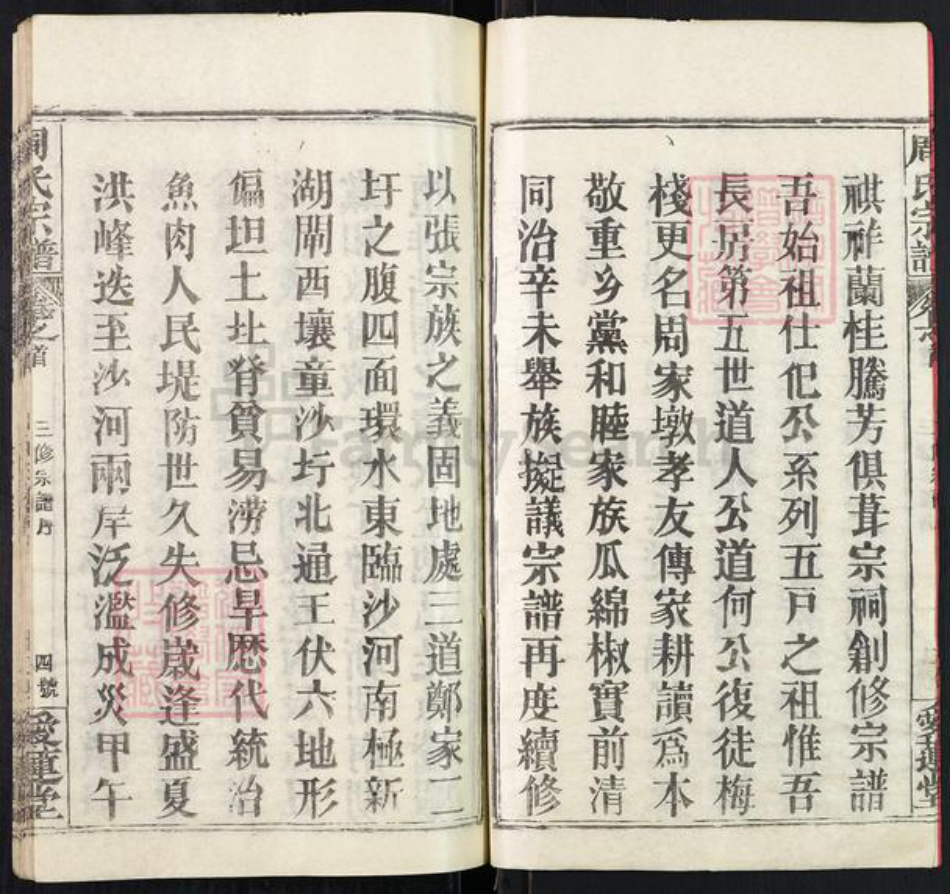 祺祥蘭桂騰芳俱葺宗祠創修宗譜
吾始祖仕伲公系列五戸之祖惟吾
長房第五世道人公道何公復徒梅
棧更名周家墩孝友傳家耕讀爲本
敬重乡黨和睦家族瓜綿椒實前清
同治辛未舉族擬議宗譜再度續修
以張宗族之義固地處三道鄭家二
圩之腹四面環水東臨沙河南極新
湖閘西壤童沙圩北通王伏六地形
偏坦土圵脊貧易澇忌旱歷代統治
魚肉人民堤防世久失修歲逢盛夏
洪峰迭至沙河兩岸泛濫成災甲午
周氏宗譜
卷之首
三修宗譜序
四號
愛蓮堂